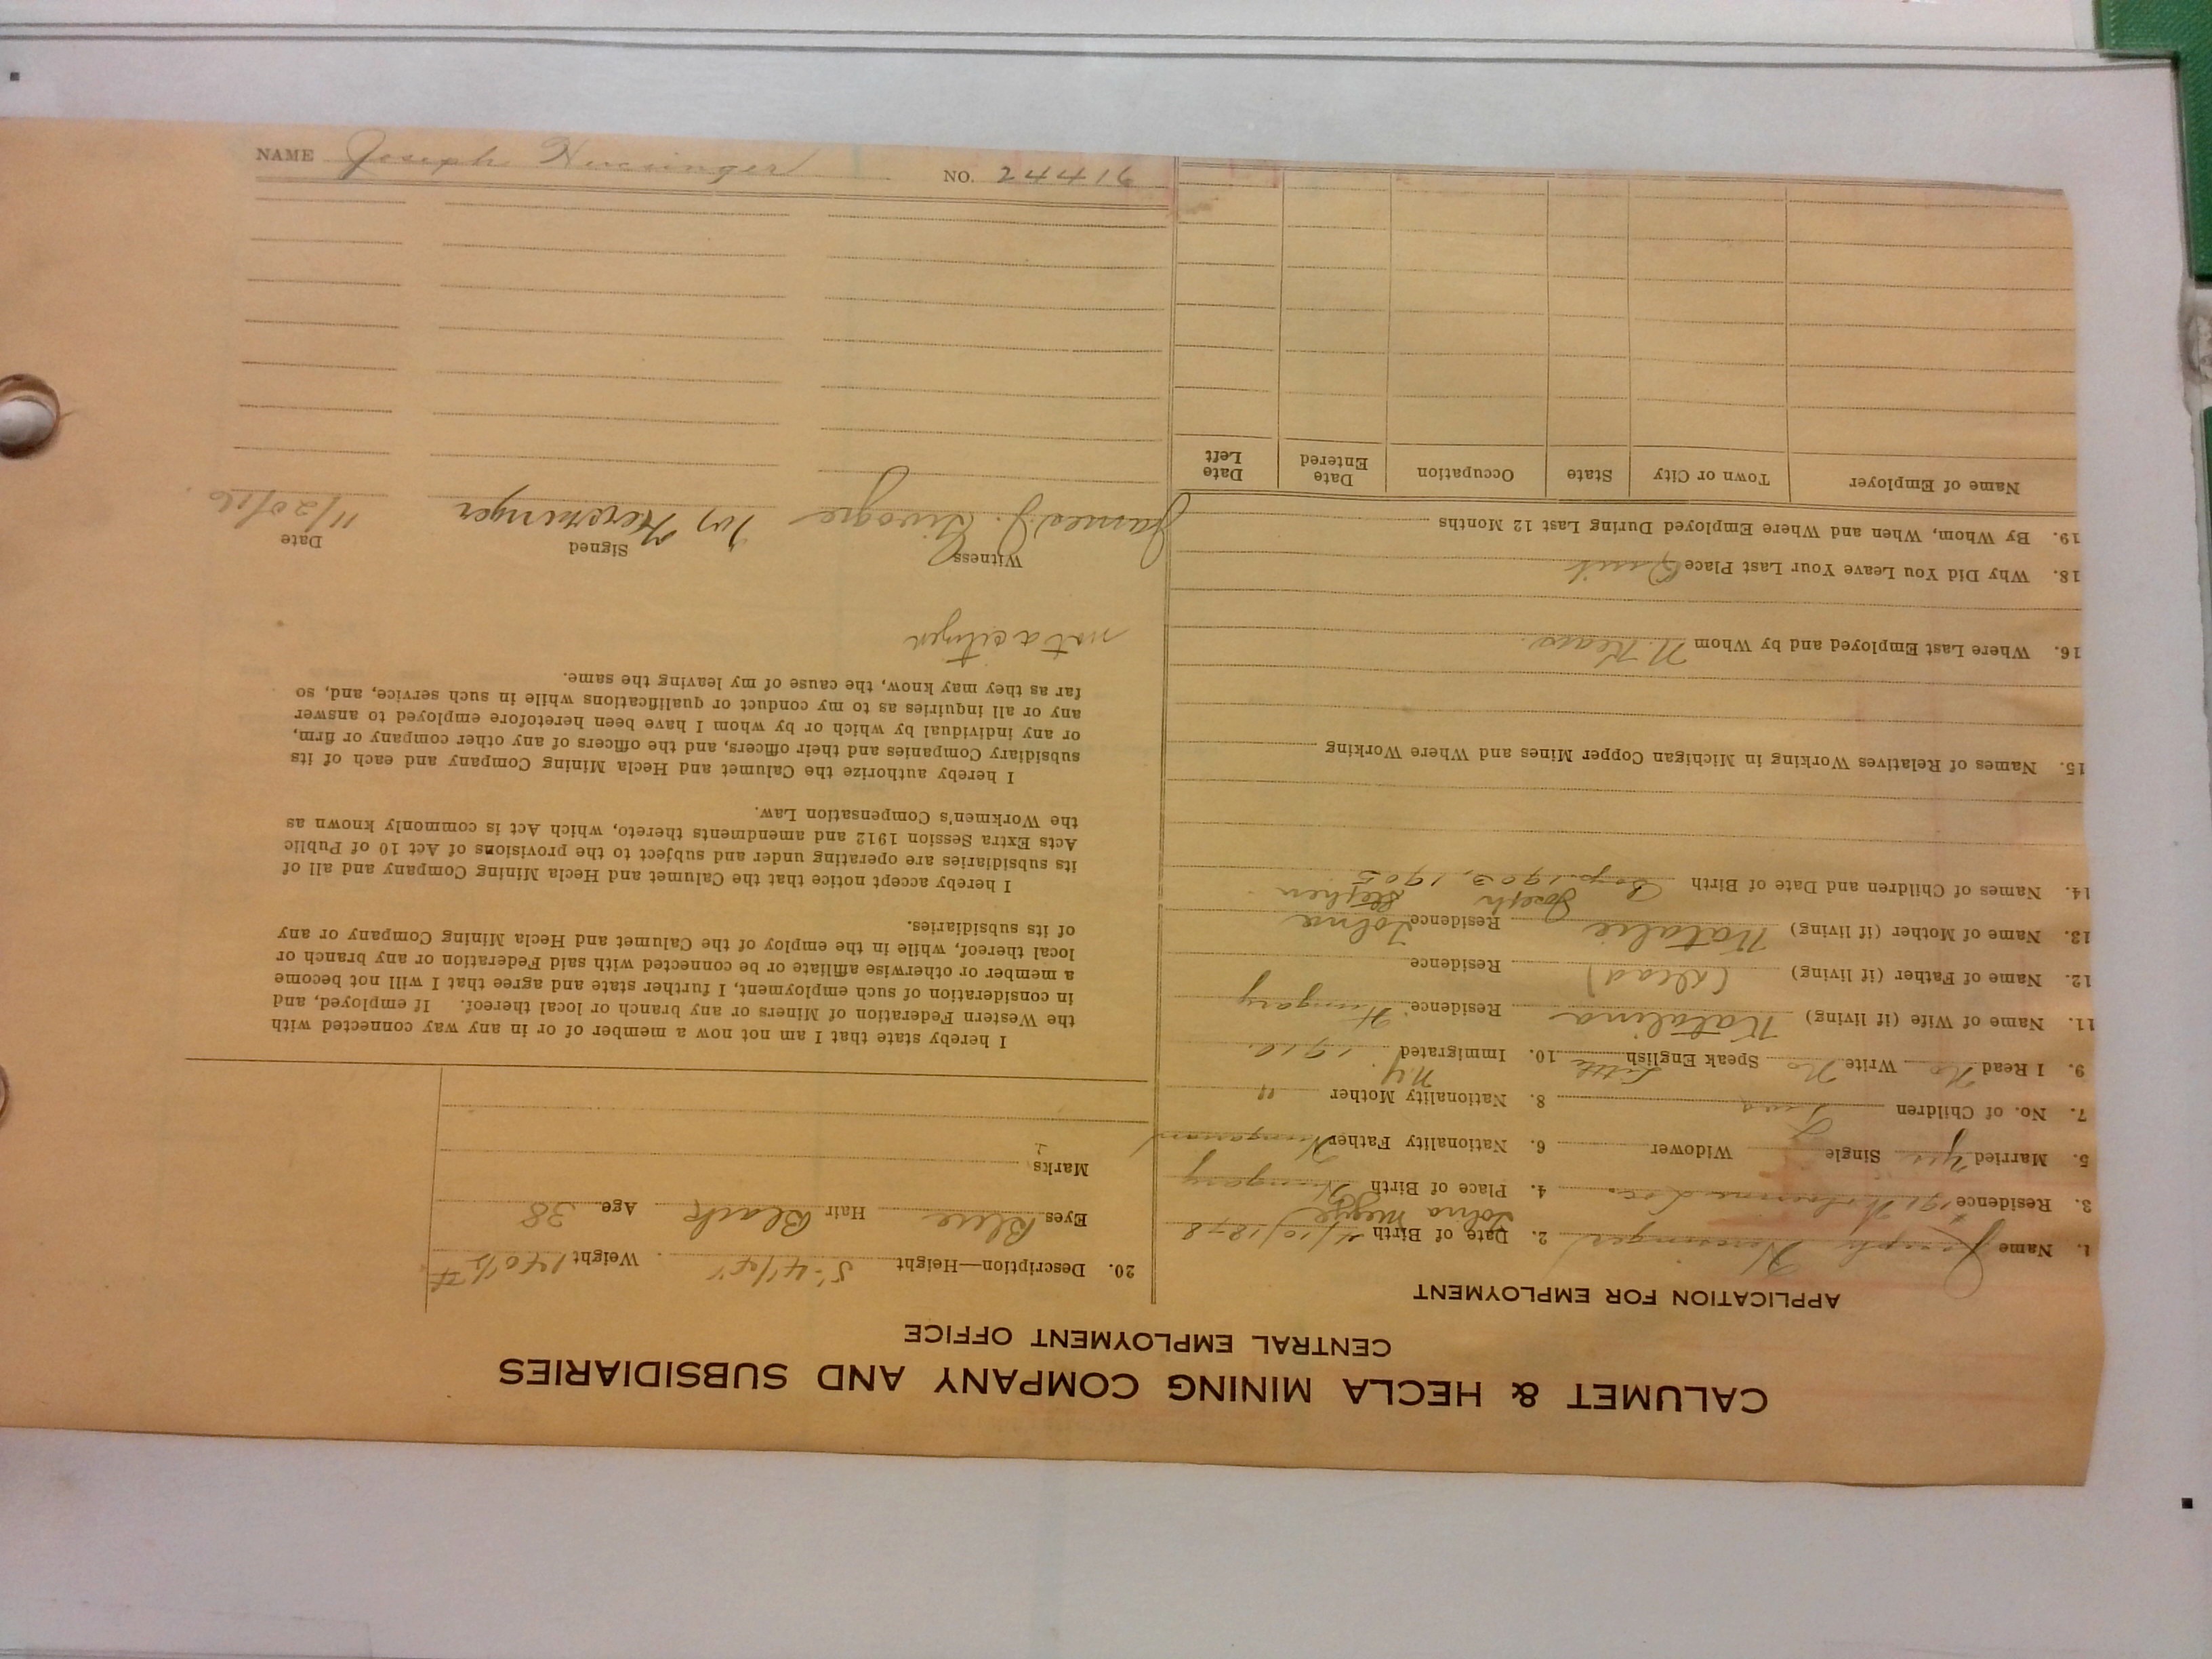 CALUMET & HECLA MINING COMPANY AND SUBSIDIARIES
CENTRAL EMPLOYMENT OFFICE
APPLICATION FOR EMPLOYMENT
1. Name Joseph 2. Date of Birth 4/10/1878
Tolna Megye
3. Residence 4. Place of Birth Hungary
5. Married Yes Single Widower 6. Nationality Father Hungarian
7. No. of Children Two 8. Nationality Mother "
N.Y.
9. I Read No Write No Speak English Little 10. Immigrated 1910.
11. Name of Wife (if living) Natalina Residence Hungary
12. Name of Father (if living) (Dead) Residence
13. Name of Mother (if living) Natalie Residence Tolna
Joseph Stephen
14. Names of Children and Date of Birth Boys 1903, 1905
15. Names of Relatives Working in Michigan Copper Mines and Where Working
16. Where Last Employed and by Whom N. Kears.
18. Why Did You Leave Your Last Place Quit
19. By Whom, When and Where Employed During Last 12 Months
Name of Employer Town or City State Occupation Date Entered Date Left
20. Description—Height 5'-4 Weight 140½ #
Eyes Blue Hair Black Age 38
Marks
I hereby state that I am not now a member of or in any way connected with
the Western Federation of Miners or any branch or local thereof. If employed, and
in consideration of such employment, I further state and agree that I will not become
a member or otherwise affiliate or be connected with said Federation or any branch or
local thereof, while in the employ of the Calumet and Hecla Mining Company or any
of its subsidiaries.
I hereby accept notice that the Calumet and Hecla Mining Company and all of
its subsidiaries are operating under and subject to the provisions of Act 10 of Public
Acts Extra Session 1912 and amendments thereto, which Act is commonly known as
the Workmen's Compensation Law.
I hereby authorize the Calumet and Hecla Mining Company and each of its
subsidiary Companies and their officers, and the officers of any other company or firm,
or any individual by which or by whom I have been heretofore employed to answer
any or all inquiries as to my conduct or qualifications while in such service, and, so
far as they may know, the cause of my leaving the same.
not a citizen
Witness Signed Date
James J. 11/20/16
NAME Joseph NO. 24416